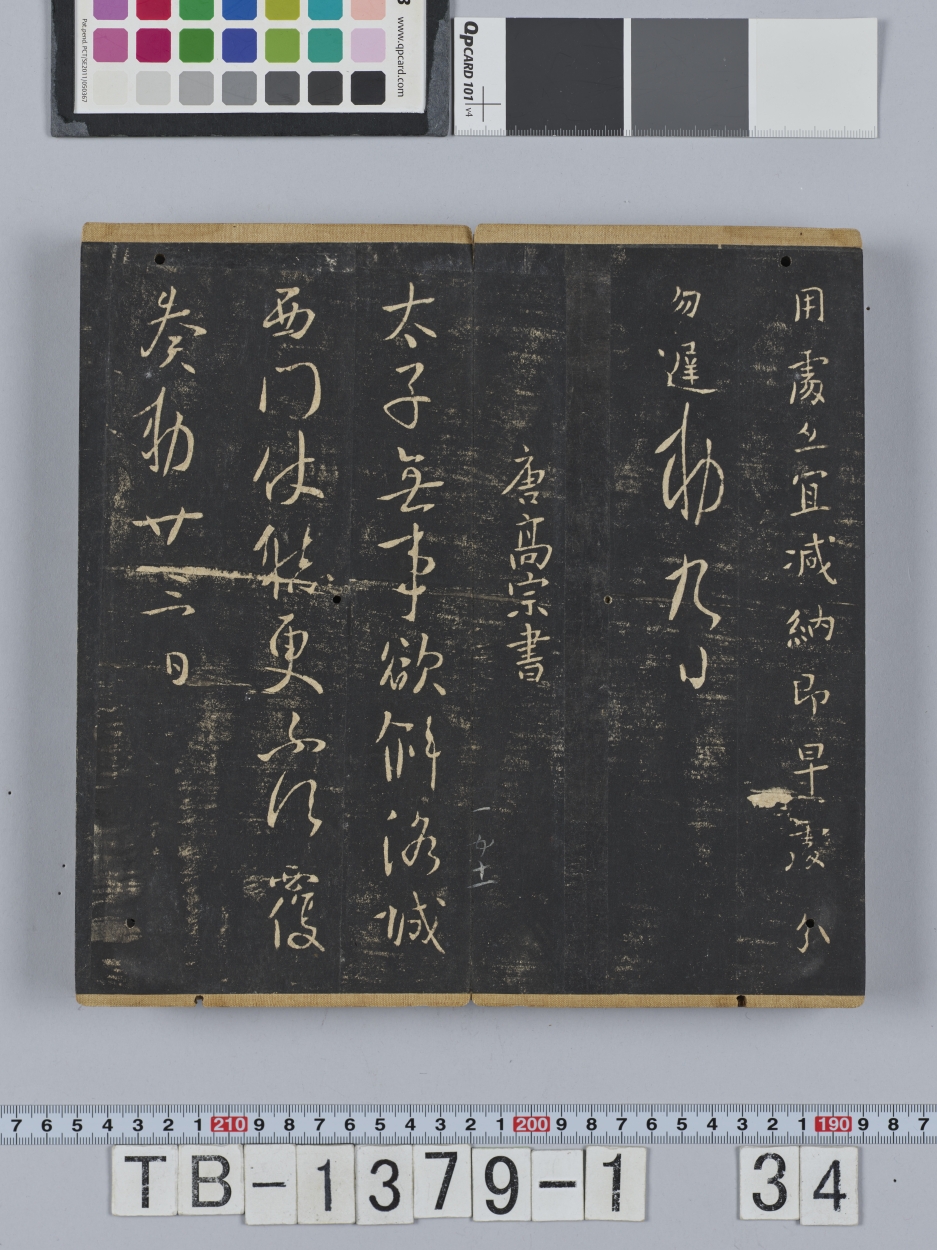 用處亦宜減納即早處分
勿遲敕九日
唐高宗書
太子無事欲斜洛城
西門仗依更不須覆
奏敕廿二日
www.qpcard.com
QPCARD 101 v4
7 6 5 4 3 2 1 210 9 8 7 6 5 4 3 2 1 200 9 8 7 6 5 4 3 2 1 190 9 8 7
TB-1379-1 34